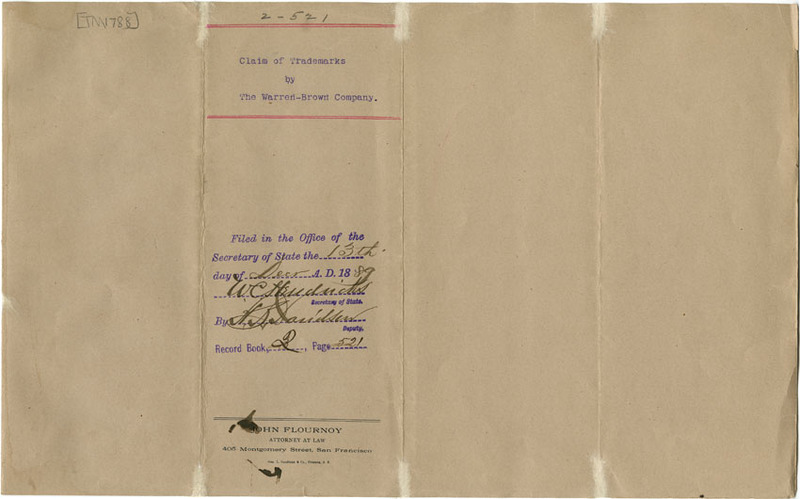 [TM 788]
2-521
Claim of Trademarks
by
The Warren-Brown Company.
Filed in the Office of the
Secretary of State the 13th
day of Dec A. D. 1889
W C Hendricks
Secretary of State.
By
Deputy.
Record Book, 2, Page 521
JOHN FLOURNOY
ATTORNEY AT LAW
406 Montgomery Street, San Francisco